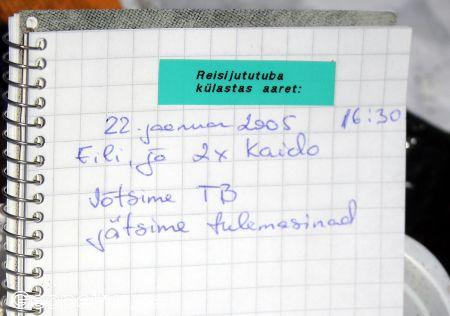 Reisijututuba
külastas aaret:
22. jaanuar 2005 16:30
Eili, ja 2x Kaido
Võtsime TB
jätsime tulemasinad